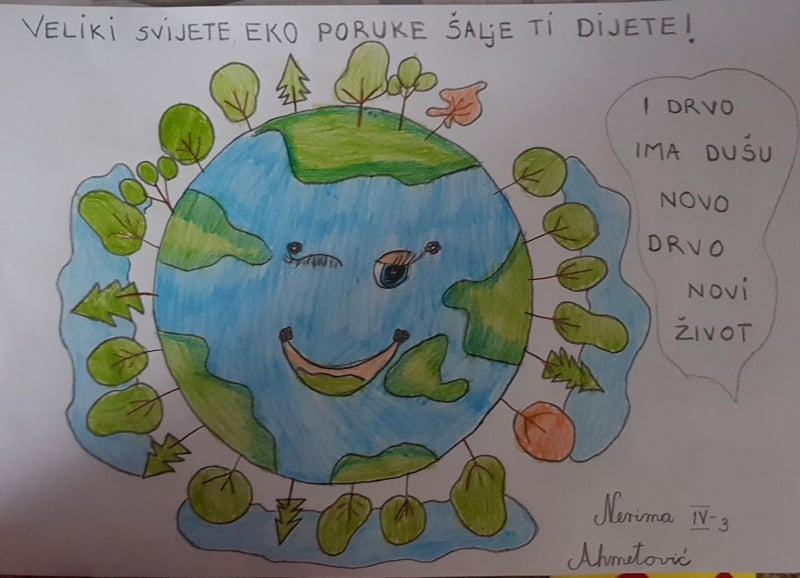 VELIKI SVIJETE, EKO PORUKE ŠALjE TI DIJETE!
I DRVO
IMA DUŠU
NOVO
DRVO
NOVI
ŽIVOT
Nerima IV-3
Ahmetović